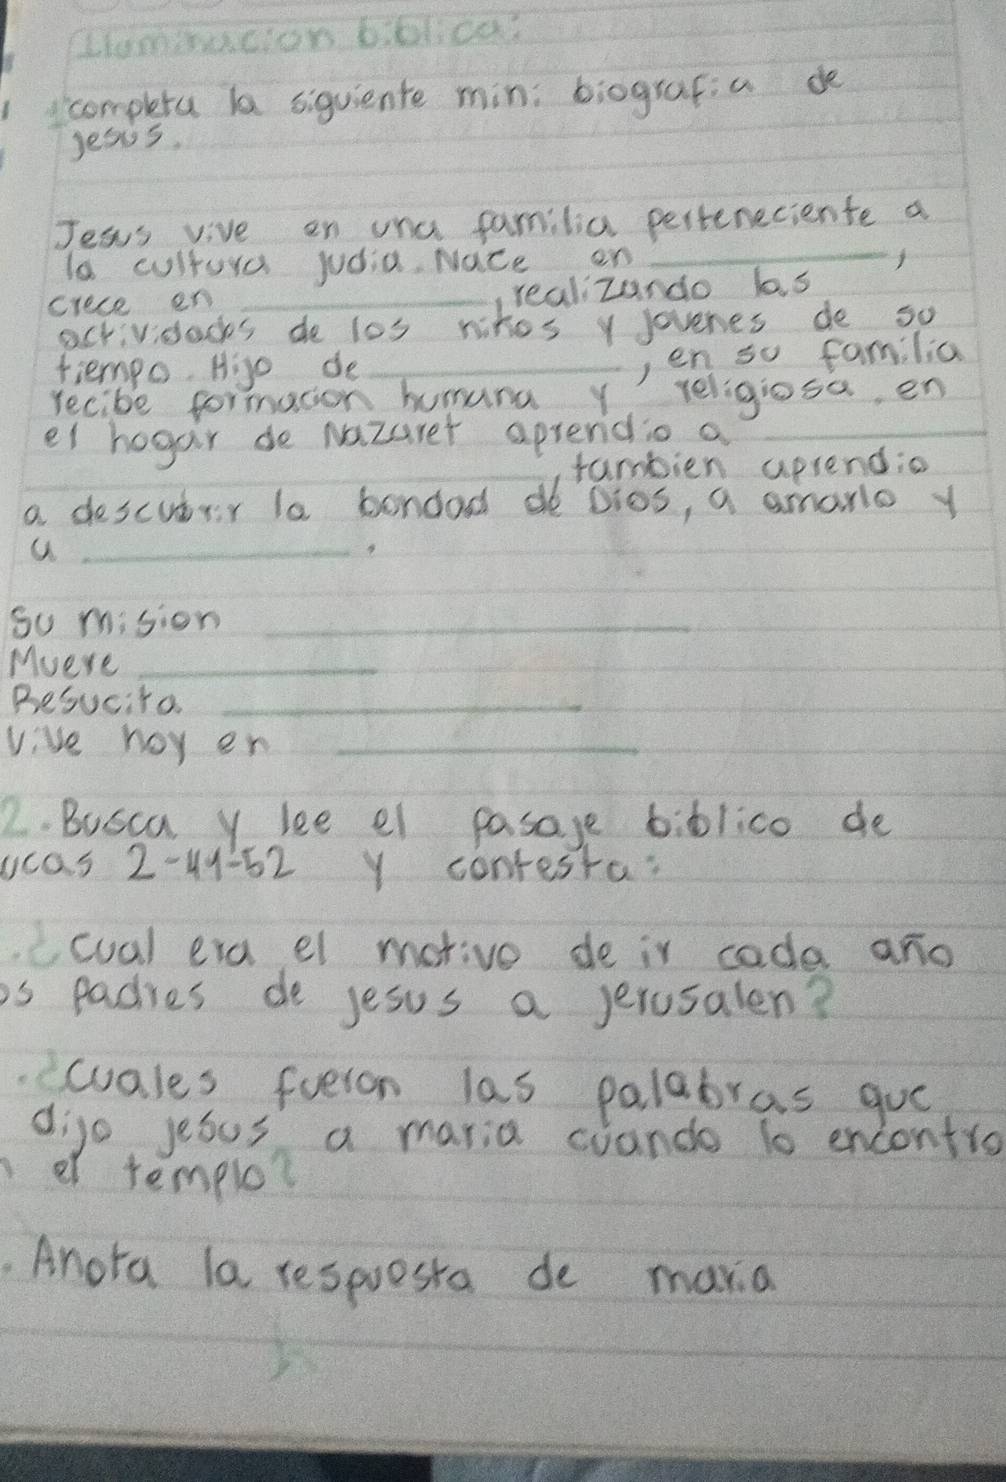 Iluminacion biblica:
1 completa la siguiente mini biografia de
jesus.
Jesus vive en una familia perteneciente a
la cultura judia. Nace en ____________,
crece en ____________, realizando las
actividades de los niños y jovenes de su
tiempo. Hijo de ____________, en su familia
recibe formacion humana y religiosa, en
el hogar de Nazaret aprendio a ____________
____________, tambien aprendio
a descubrir la bondad de Dios, a amarlo y
a ____________.
su mision ____________
Muere ____________
Resucita ____________
Vive hoy en ____________
2. Busca y lee el pasaje biblico de
ucas 2-41-52 y contesta:
. ¿cual era el motivo de ir cada año
os padres de jesus a jerusalen?
. ¿cuales fueron las palabras que
dijo jesus a maria cuando lo encontro
n el templo?
. Anota la respuesta de maria